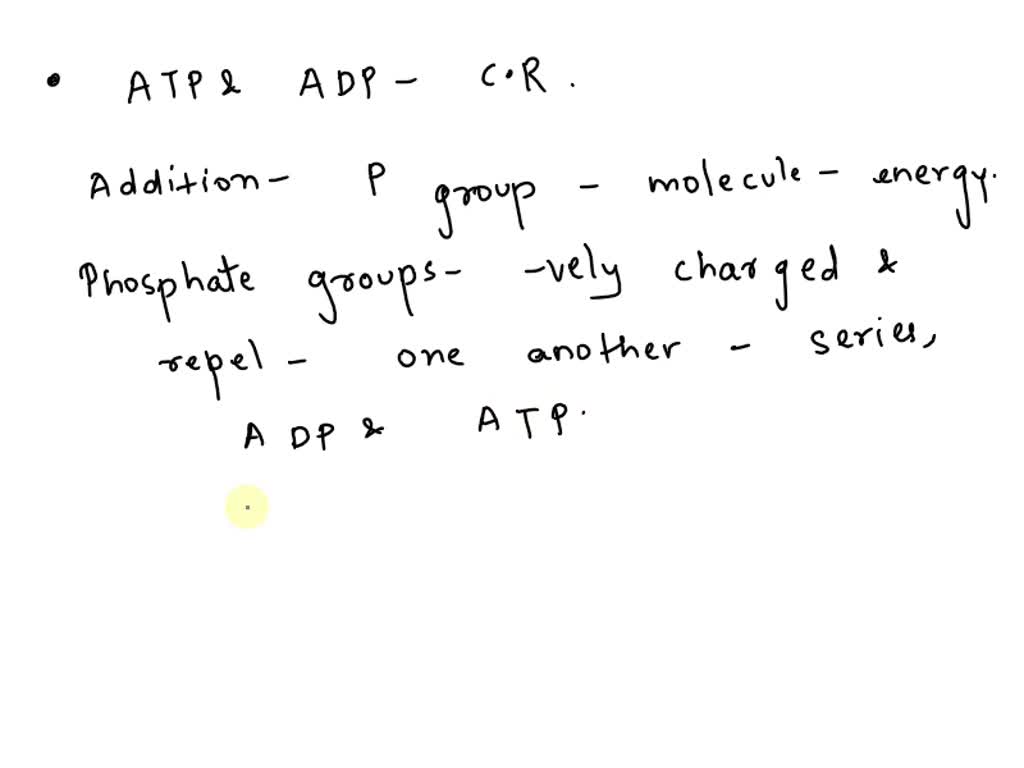 • ATP & ADP - C.R.
Addition - P group - molecule - energy.
Phosphate groups - -vely charged &
repel - one another - series,
ADP & ATP.